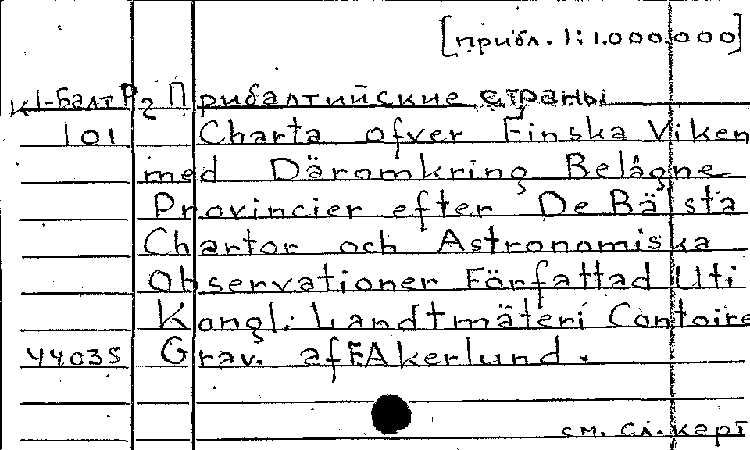 [прибл. 1:1.000.000]
К1-Балт Р2 Прибалтийские страны
101 Charta ofver Finska Viken
med Däromkring Belägne
Provincier efter De Bästa
Chartor och Astronomiska
Observationer Författad Uti
Kongl. Landtmäteri Contoire
44035 Grav. af F.Akerlund.
см. сл. карт